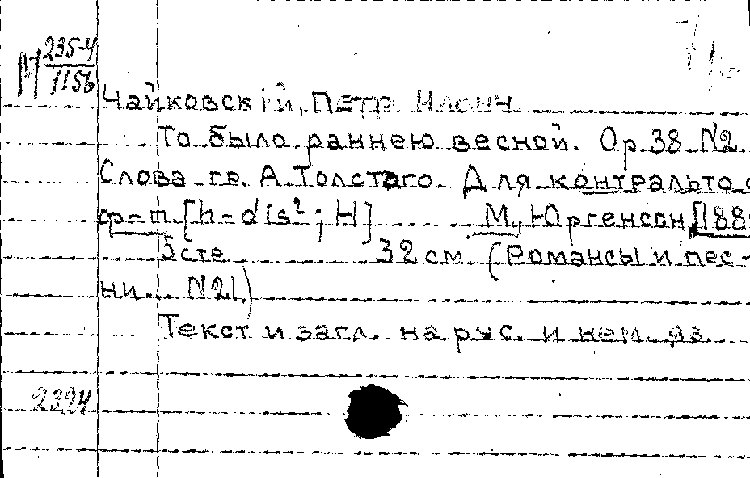 235-4
1156
Чайковский, Петр Ильич
То было раннею весной. Ор. 38 №2.
Слова гр. А. Толстого. Для контральто с
ф-п. [h-dis²; H] М., Юргенсон, [188
5 стр. 32 см. (Романсы и пес-
ни. №21.)
Текст и загл. на рус. и нем. яз.
2394